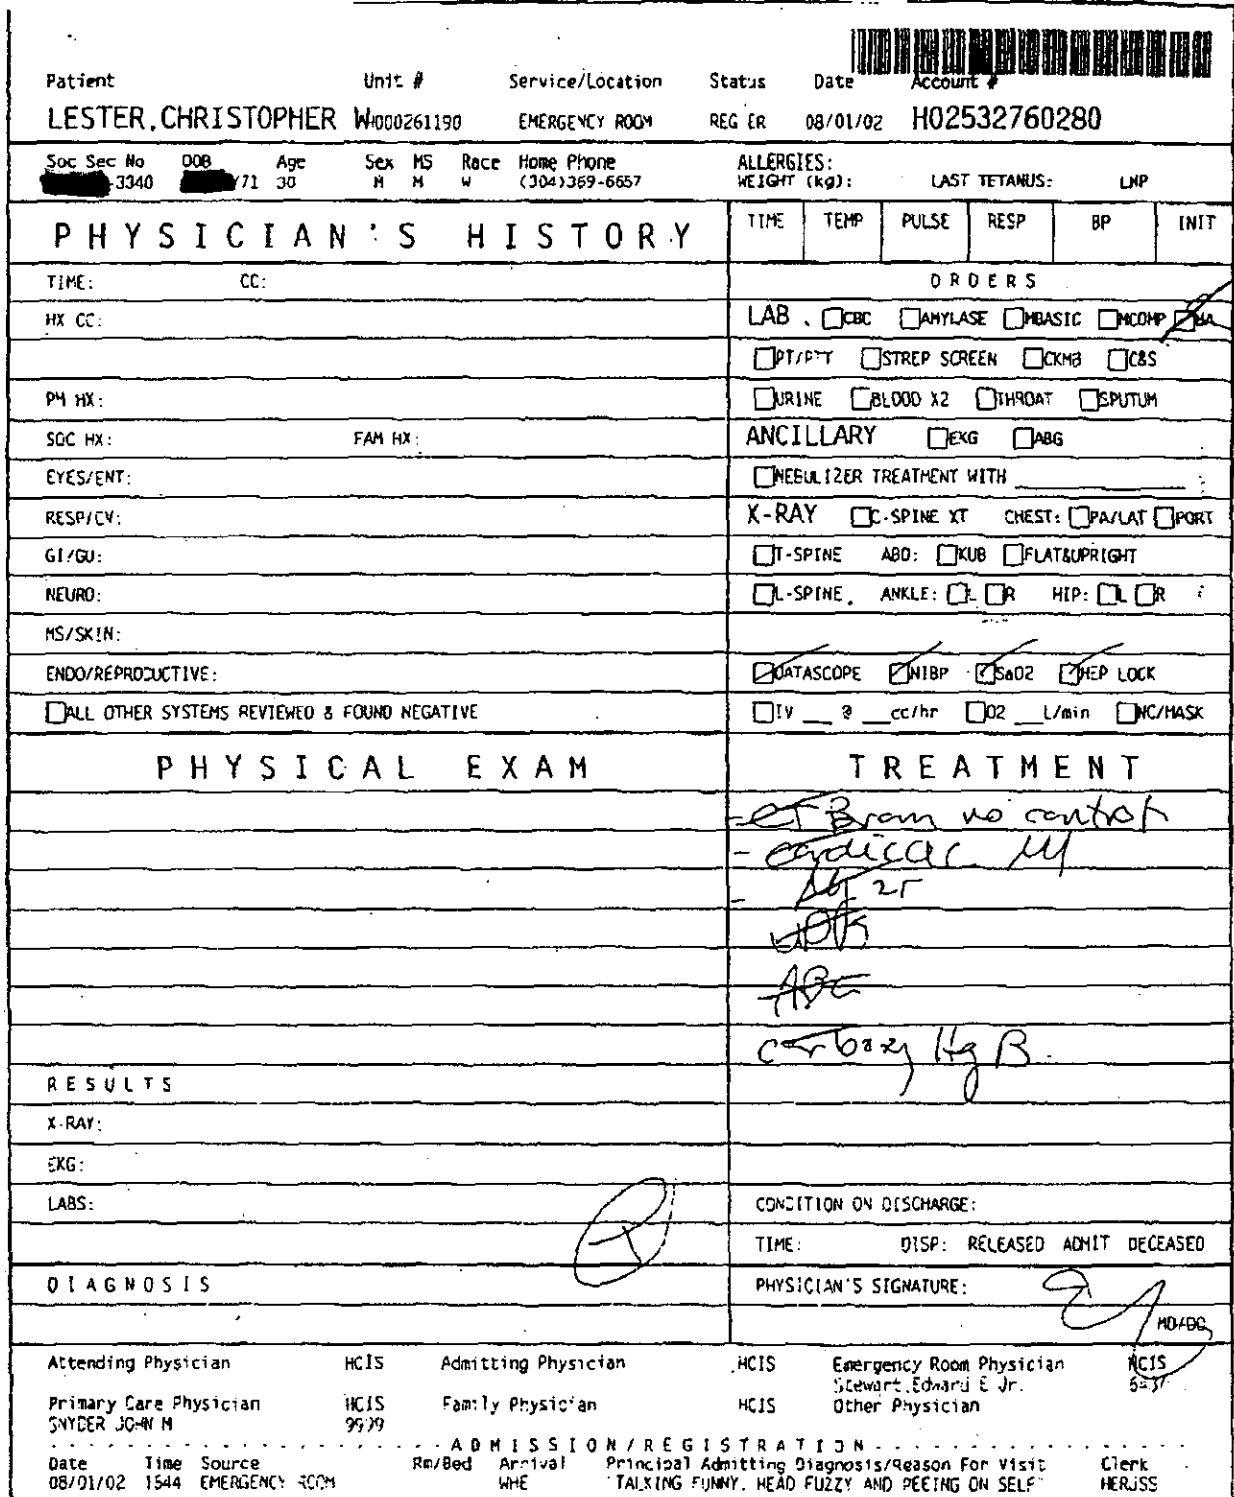 Patient Unit # Service/Location Status Date Account #
LESTER,CHRISTOPHER W H000261190 EMERGENCY ROOM REG ER 08/01/02 H02532760280
Soc Sec No DOB Age Sex MS Race Home Phone ALLERGIES:
-3340 /71 30 M M W (304)369-6657 WEIGHT (kg): LAST TETANUS: LNP
PHYSICIAN'S HISTORY TIME TEMP PULSE RESP BP INIT
TIME: CC: ORDERS
HX CC: LAB . CBC AMYLASE MBASIC MCOMP UA
PT/PTT STREP SCREEN CKMB C&S
PM HX: URINE BLOOD X2 THROAT SPUTUM
SOC HX: FAM HX: ANCILLARY EKG ABG
EYES/ENT: NEBULIZER TREATMENT WITH
RESP/CV: X-RAY C-SPINE XT CHEST: PA/LAT PORT
GI/GU: T-SPINE ABD: KUB FLAT&UPRIGHT
NEURO: L-SPINE ANKLE: L R HIP: L R
MS/SKIN:
ENDO/REPRODUCTIVE: DATASCOPE NIBP SaO2 HEP LOCK
ALL OTHER SYSTEMS REVIEWED & FOUND NEGATIVE IV ___ @ ___cc/hr O2 ___L/min NC/MASK
PHYSICAL EXAM TREATMENT
- CT Brain no contrast
- cardiac
UDS
ABG
carboxy Hg B.
RESULTS
X-RAY:
EKG:
LABS: CONDITION ON DISCHARGE:
TIME: DISP: RELEASED ADMIT DECEASED
DIAGNOSIS PHYSICIAN'S SIGNATURE:
MD/DO
Attending Physician HCIS Admitting Physician HCIS Emergency Room Physician HCIS
Stewart,Edward E Jr.
Primary Care Physician HCIS Family Physician HCIS Other Physician
SNYDER JOHN M 9999
ADMISSION/REGISTRATION
Date Time Source Rm/Bed Arrival Principal Admitting Diagnosis/Reason For Visit Clerk
08/01/02 1544 EMERGENCY ROOM WHE "TALKING FUNNY, HEAD FUZZY AND PEEING ON SELF" HERJSS